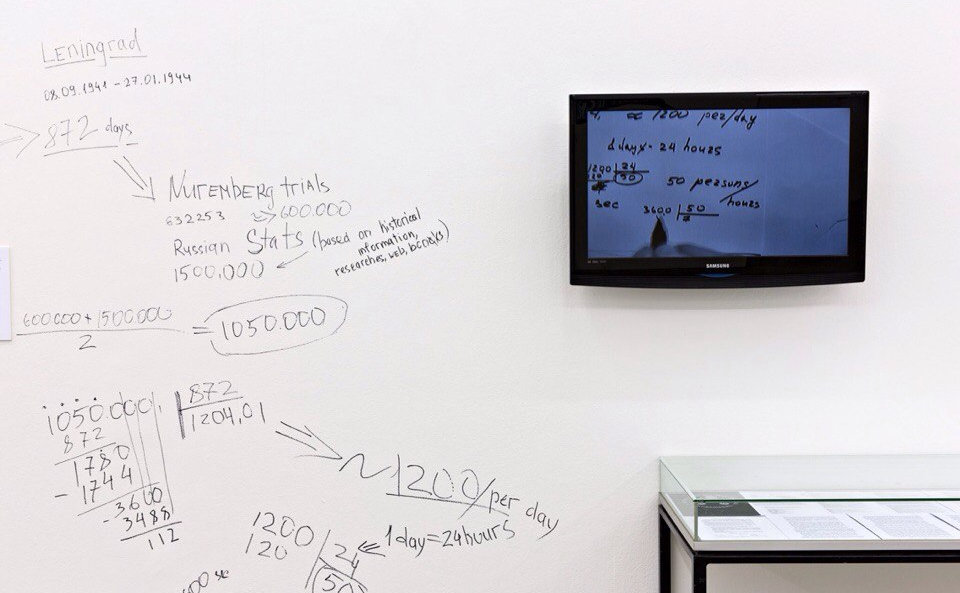 Leningrad
08.09.1941 - 27.01.1944
872 days
Nuremberg trials
632253 ≈> 600.000
Russian Stats (based on historical
information,
researches, web, books)
1500.000
600.000 + 1500.000
2
= 1050.000
1050.000 872
872 1204,01
1780
- 1744
- 3600
3488
112
~1200/per day
1200 24
120 50
1 day = 24 hours
≈ 1200 per/day
24 hours
1200 24
50
50 persons/
hours
sec
3600 50
SAMSUNG